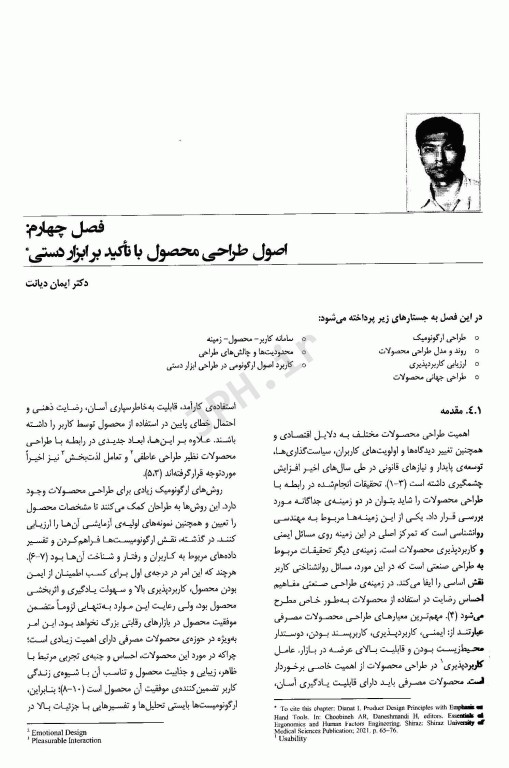 فصل چهارم:
اصول طراحی محصول با تأکید بر ابزار دستی*
دکتر ایمان دیانت
در این فصل به جستارهای زیر پرداخته می‌شود:
○ طراحی ارگونومیک
○ روند و مدل طراحی محصولات
○ ارزیابی کاربردپذیری
○ طراحی جهانی محصولات
○ سامانه کاربر- محصول- زمینه
○ محدودیت‌ها و چالش‌های طراحی
○ کاربرد اصول ارگونومی در طراحی ابزار دستی
۴.۱. مقدمه
اهمیت طراحی محصولات مختلف به دلایل اقتصادی و
همچنین تغییر دیدگاه‌ها و اولویت‌های کاربران، سیاست‌گذاری‌ها،
توسعه‌ی پایدار و نیازهای قانونی در طی سال‌های اخیر افزایش
چشمگیری داشته است (۳-۱). تحقیقات انجام‌شده در رابطه با
طراحی محصولات را شاید بتوان در دو زمینه‌ی جداگانه مورد
بررسی قرار داد. یکی از این زمینه‌ها مربوط به مهندسی
روانشناسی است که تمرکز اصلی در این زمینه روی مسائل ایمنی
و کاربردپذیری محصولات است. زمینه‌ی دیگر تحقیقات مربوط
به طراحی صنعتی است که در این مورد، مسائل روانشناختی کاربر
نقش اساسی را ایفا می‌کند. در زمینه‌ی طراحی صنعتی مفاهیم
احساس رضایت در استفاده از محصولات به‌طور خاص مطرح
می‌شود (۴). مهم‌ترین معیارهای طراحی محصولات مصرفی
عبارتند از: ایمنی، کاربردپذیری، کاربرپسند بودن، دوستدار
محیط‌زیست بودن و قابلیت بالای عرضه در بازار. عامل
کاربردپذیری¹ در طراحی محصولات از اهمیت خاصی برخوردار
است. محصولات مصرفی باید دارای قابلیت یادگیری آسان،
* To cite this chapter: Dianat I. Product Design Principles with Emphasis on
Hand Tools. In: Choobineh AR, Daneshmandi H, editors. Essentials of
Ergonomics and Human Factors Engineering. Shiraz: Shiraz University of
Medical Sciences Publication; 2021. p. 65-76.
¹ Usability
استفاده‌ی کارآمد، قابلیت به‌خاطرسپاری آسان، رضایت ذهنی و
احتمال خطای پایین در استفاده از محصول توسط کاربر را داشته
باشند. علاوه بر این‌ها، ابعاد جدیدی در رابطه با طراحی
محصولات نظیر طراحی عاطفی² و تعامل لذت‌بخش³ نیز اخیراً
موردتوجه قرار گرفته‌اند (۵،۳).
روش‌های ارگونومیک زیادی برای طراحی محصولات وجود
دارد. این روش‌ها به طراحان کمک می‌کنند تا مشخصات محصول
را تعیین و همچنین نمونه‌های اولیه‌ی آزمایشی آن‌ها را ارزیابی
کنند. در گذشته، نقش ارگونومیست‌ها فراهم‌کردن و تفسیر
داده‌های مربوط به کاربران و رفتار و شناخت آن‌ها بود (۷-۶).
هرچند که این امر در درجه‌ی اول برای کسب اطمینان از ایمن
بودن محصول، کاربردپذیری بالا و سهولت یادگیری و اثربخشی
محصول بود، ولی رعایت این موارد به‌تنهایی لزوماً متضمن
موفقیت محصول در بازارهای رقابتی بزرگ نخواهد بود. این امر
به‌ویژه در حوزه‌ی محصولات مصرفی دارای اهمیت زیادی است؛
چراکه در مورد این محصولات، احساس و جنبه‌ی تجربی مرتبط با
ظاهر، زیبایی و جذابیت محصول و تناسب آن با شیوه‌ی زندگی
کاربر تضمین‌کننده‌ی موفقیت آن محصول است (۱۰-۸)؛ بنابراین،
ارگونومیست‌ها بایستی تحلیل‌ها و تفسیرهایی با جزئیات بالا در
² Emotional Design
³ Pleasurable Interaction